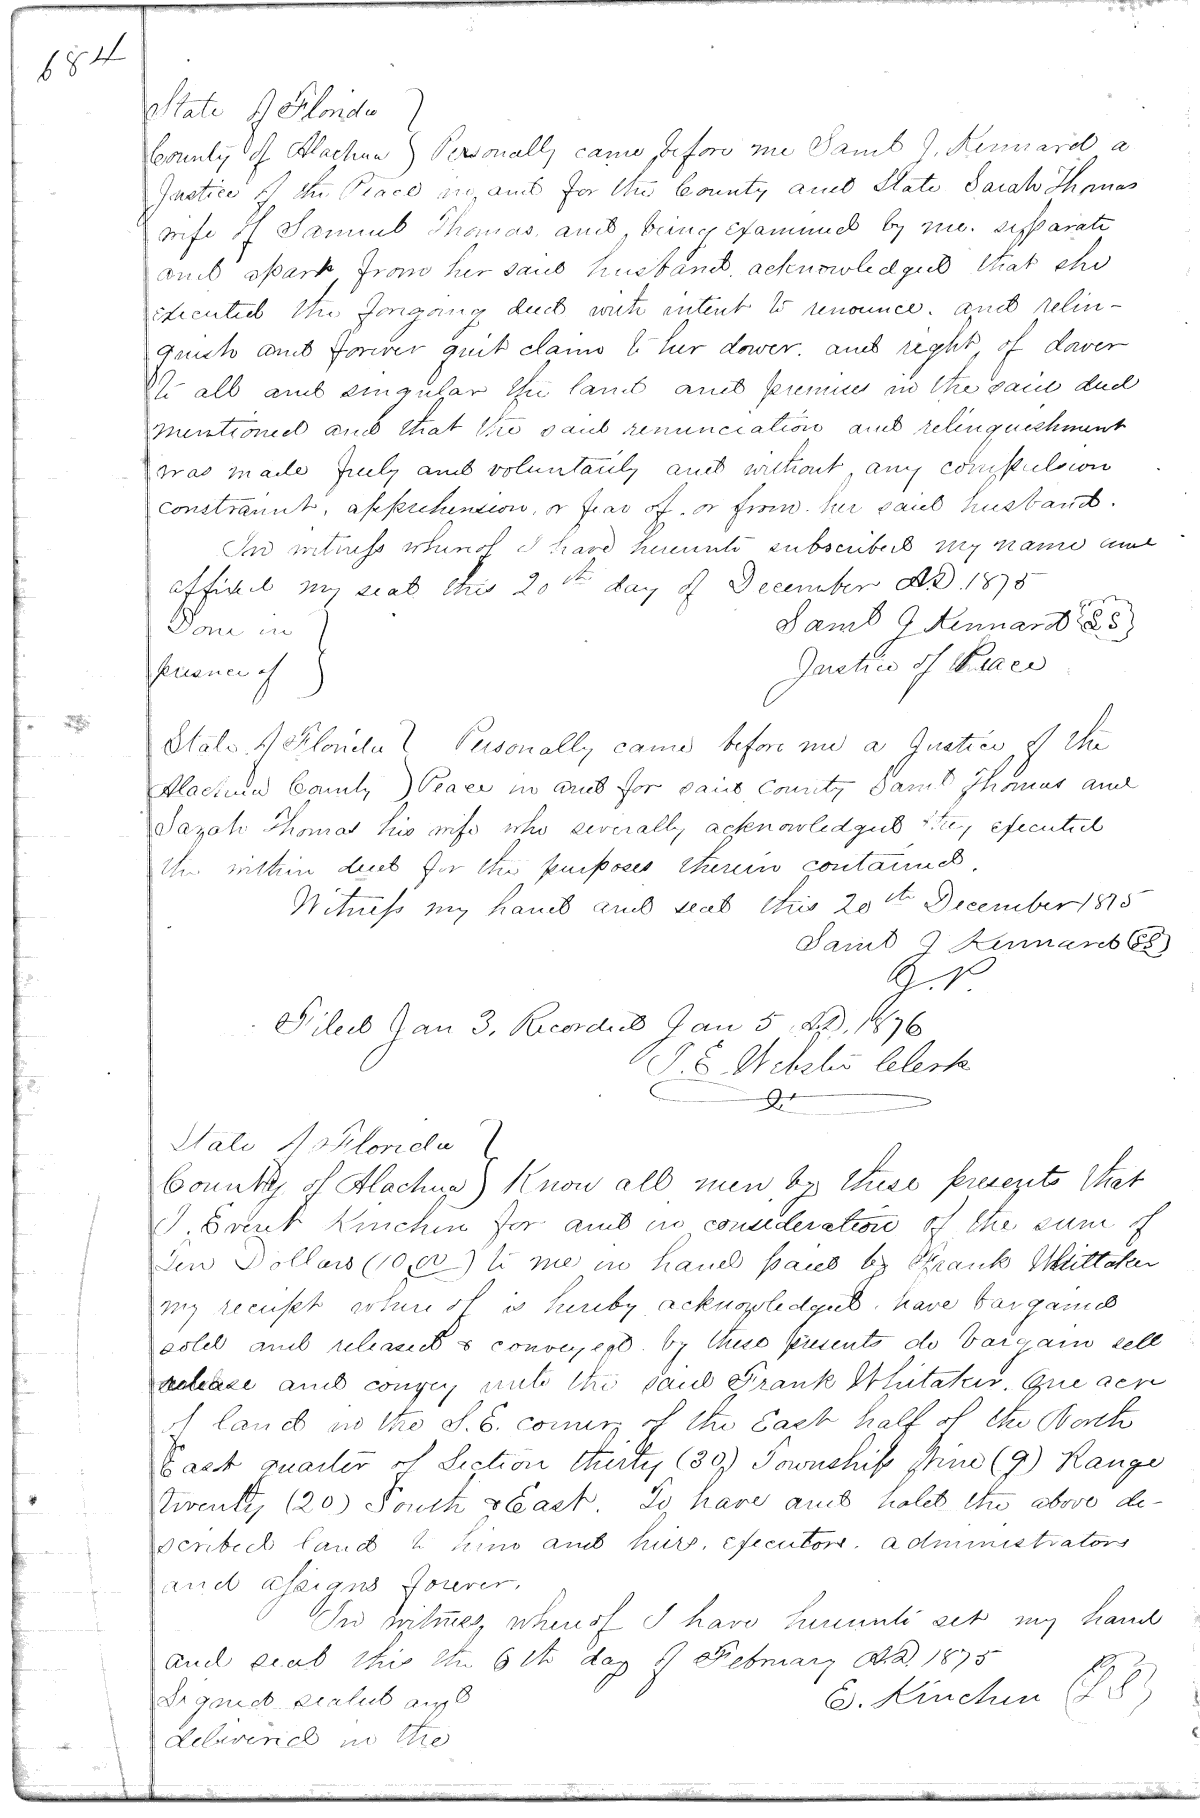 684
State of Florida }
County of Alachua } Personally came before me Saml J. Kennard a
Justice of the Peace in and for the County and State Sarah Thomas
wife of Samuel Thomas, and, being examined by me. separate
and apart, from her said husband. acknowledged that she
executed the foregoing deed with intent to renounce. and relin-
quish and forever quit claim to her dower. and right, of dower
to all and singular the land and premises in the said deed
mentioned and that the said renunciation and relinquishment
was made freely and voluntarily and without, any compulsion
constraint, apprehension, or fear of. or from. her said husband.
In witness whereof I have hereunto subscribed my name and
affixed my seal this 20th day of December A.D. 1875
Done in } Saml J Kennard {LS}
presence of } Justice of Peace
State of Florida } Personally came before me a Justice of the
Alachua County } Peace in and for said County Saml Thomas and
Sarah Thomas his wife who severally acknowledged they executed
the within deed for the purposes therein contained.
Witness my hand and seal this 20th December 1875
Saml J Kennard (LS)
J.P.
Filed Jan 3, Recorded Jan 5 A.D. 1876
J. E. Webster Clerk
State of Florida }
County of Alachua } Know all men by these presents that
I. Everet Kinchen for and in consideration of the sum of
Ten Dollars (10.00) to me in hand paid by Frank Whittaker
my receipt where of is hereby acknowledged. have bargained
sold and released & conveyed. by these presents do bargain sell
release and convey unto the said Frank Whitaker. One acre
of land in the S.E. corner of the East half of the North
East quarter of Section thirty (30) Township Nine (9) Range
twenty (20) South & East. To have and hold the above de-
scribed land to him and heirs. executors. administrators
and assigns forever.
In witness, where of I have hereunto set my hand
and seal this the 6th day of February A.D. 1875
Signed sealed and E. Kinchen (LS)
delivered in the